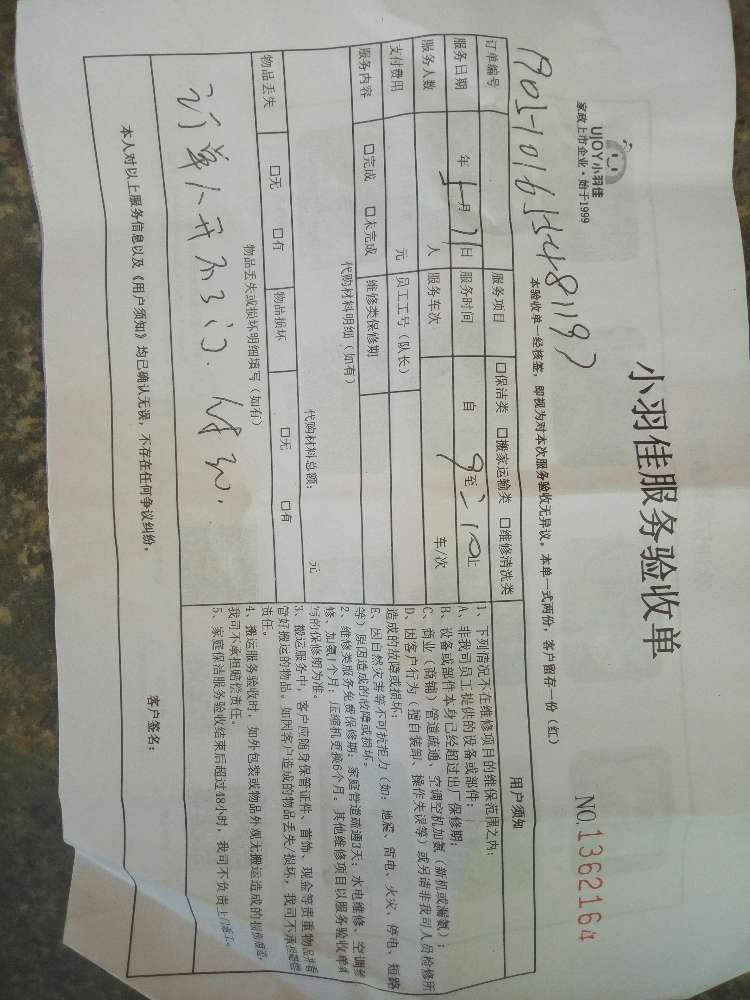 UJOY小羽佳
家政上市企业·始于1999
小羽佳服务验收单
NO.1362164
本验收单一经核签，即视为对本次服务验收无异议。本单一式两份，客户留存一份（红）
订单编号
服务项目 口保洁类 口搬家运输类 口维修清洗类
服务日期 年 5月 71日 服务时间 自 9 至 10 止
服务人数 人 服务车次 车/次
支付费用 元 员工工号（队长）
服务内容 口完成 口未完成 维修类保修期
代购材料明细（如有）
代购材料总额： 元
物品丢失 口无 口有 物品损坏 口无 口有
物品丢失或损坏明细填写（如有）
本人对以上服务信息以及《用户须知》均已确认无误，不存在任何争议纠纷。
客户签名：
用户须知
1、下列情况不在维修项目的维保范围之内：
A、非我司员工提供的设备或部件；
B、设备或部件本身已经超过出厂保修期；
C、商业（商铺）管道疏通、空调空机加氨（新机或漏氨）；
D、因客户行为（擅自装卸、操作失误等）或另请非我司人员检修所
造成的故障或损坏；
E、因自然灾害等不可抗拒力（如：地震、雷电、火灾、停电、短路
等）原因造成的故障或损坏。
2、维修类服务免费保修期：家庭管道疏通3天；水电维修、空调维
修、加氨1个月；压缩机更换6个月。其他维修项目以服务验收单
写的保修期为准。
3、搬运服务中，客户应随身保管证件、首饰、现金等贵重物品并看
管好搬运的物品。如因客户造成的物品丢失/损坏，我司不承担赔偿
责任。
4、搬运服务验收时，如外包装或物品外观无搬运造成的损
我司不承担赔偿责任。
5、家庭保洁服务验收结束后超过48小时，我司不负责上门返工。